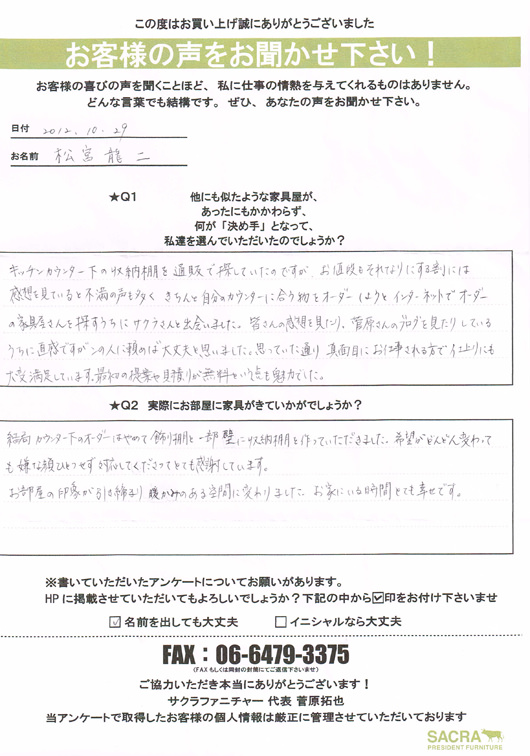 この度はお買い上げ誠にありがとうございました
お客様の声をお聞かせ下さい！
お客様の喜びの声を聞くことほど、私に仕事の情熱を与えてくれるものはありません。
どんな言葉でも結構です。ぜひ、あなたの声をお聞かせ下さい。
日付 2012.10.29
お名前 松宮 龍二
★Q1 他にも似たような家具屋が、
あったにもかかわらず、
何が「決め手」となって、
私達を選んでいただいたのでしょうか？
キッチンカウンター下の収納棚を通販で探していたのですが、お値段もそれなりにする割には
感想を見ていると不満の声も多く きちんと自分のカウンターに合う物をオーダーしようとインターネットでオーダー
の家具屋さんを探すうちにサクラさんと出会いました。皆さんの感想を見たり、菅原さんのブログを見たりしている
うちに直感ですがこの人に頼めば大丈夫と思いました。思っていた通り真面目にお仕事される方で仕上りにも
大変満足しています。最初の提案や見積りが無料という点も魅力でした。
★Q2 実際にお部屋に家具がきていかがでしょうか？
結局カウンター下のオーダーはやめて飾り棚と一部壁に収納棚を作っていただきました。希望がどんどん変わって
も嫌な顔ひとつせず対応してくださってとても感謝しています。
お部屋の印象が引き締まり暖かみのある空間に変わりました。お家にいる時間とても幸せです。
※書いていただいたアンケートについてお願いがあります。
HPに掲載させていただいてもよろしいでしょうか？下記の中から☑印をお付け下さいませ
☑ 名前を出しても大丈夫 □ イニシャルなら大丈夫
FAX：06-6479-3375
(FAXもしくは同封の封筒にてご返信下さいませ)
ご協力いただき本当にありがとうございます！
サクラファニチャー 代表 菅原拓也
当アンケートで取得したお客様の個人情報は厳正に管理させていただいております
SACRA
PRESIDENT FURNITURE